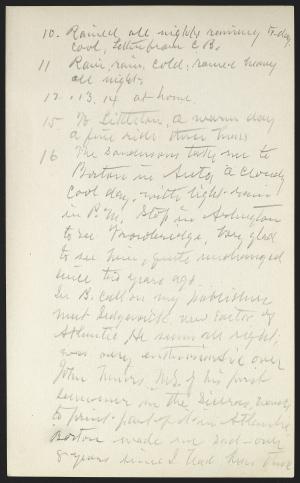 10. Rained all night, raining to-day,
cool, Letter from C.B.
11 Rain, rain, cold, rained heavy
all night.
12. 13. 14 at home
15 To Littleton, a warm day
a fine ride
16 The Sandersons take me to
Boston in Auto, a cloudy
cool day, with light rain
in P.M. Stop in Arlington
to see Trowbridge, very glad
to see him, quite unchanged
since ten years ago.
In B. call on my publishers
meet Sedgwick, new editor of
Atlantic. He seems all right;
was very enthusiastic over
John Muir's MS of his first
summer in the Sierras, wants
to print part of it in Atlantic
Boston made me sad - over
8 years since I had been there